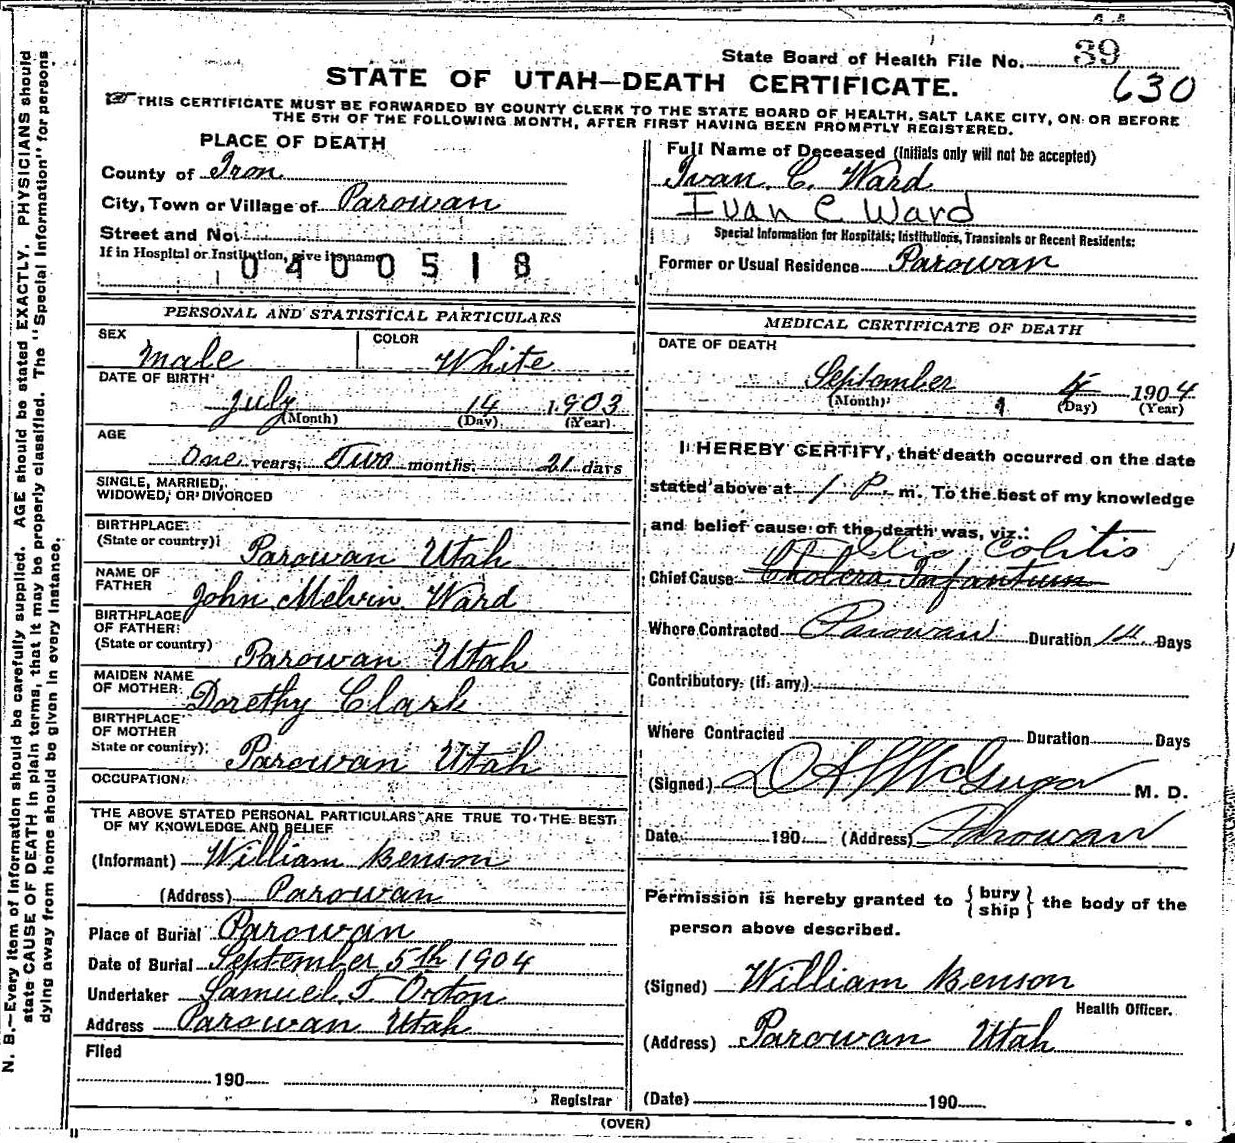 State Board of Health File No. 39
630
STATE OF UTAH—DEATH CERTIFICATE.
THIS CERTIFICATE MUST BE FORWARDED BY COUNTY CLERK TO THE STATE BOARD OF HEALTH, SALT LAKE CITY, ON OR BEFORE
THE 5TH OF THE FOLLOWING MONTH, AFTER FIRST HAVING BEEN PROMPTLY REGISTERED.
PLACE OF DEATH
County of Iron
City, Town or Village of Parowan
Street and No.
If in Hospital or Institution, give its name
0400518
Full Name of Deceased (Initials only will not be accepted)
Ivan C. Ward
Ivan C Ward
Special Information for Hospitals, Institutions, Transients or Recent Residents:
Former or Usual Residence Parowan
PERSONAL AND STATISTICAL PARTICULARS
SEX
Male
COLOR
White
DATE OF BIRTH
July 14 1903
(Month) (Day) (Year)
AGE
One years, Two months. 21 days
SINGLE, MARRIED,
WIDOWED, OR DIVORCED
BIRTHPLACE
(State or country)
Parowan Utah
NAME OF
FATHER
John Melvin Ward
BIRTHPLACE
OF FATHER
(State or country)
Parowan Utah
MAIDEN NAME
OF MOTHER
Dorethy Clark
BIRTHPLACE
OF MOTHER
State or country)
Parowan Utah
OCCUPATION
THE ABOVE STATED PERSONAL PARTICULARS ARE TRUE TO THE BEST
OF MY KNOWLEDGE AND BELIEF
(Informant) William Benson
(Address) Parowan
Place of Burial Parowan
Date of Burial September 5th 1904
Undertaker Samuel T Orton
Address Parowan Utah
Filed
190
Registrar
MEDICAL CERTIFICATE OF DEATH
DATE OF DEATH
September 1904
(Month) (Day) (Year)
I HEREBY CERTIFY, that death occurred on the date
stated above at 1 P. m. To the best of my knowledge
and belief cause of the death was, viz.:
Colitis
Chief Cause Cholera Infantum
Where Contracted Parowan Duration 14 Days
Contributory (if any)
Where Contracted Duration Days
(Signed) M. D.
Date 190 (Address) Parowan
Permission is hereby granted to { bury / ship } the body of the
person above described.
(Signed) William Benson
Health Officer.
(Address) Parowan Utah
(Date) 190
(OVER)
N. B.—Every item of information should be carefully supplied. AGE should be stated EXACTLY. PHYSICIANS should
state CAUSE OF DEATH in plain terms, that it may be properly classified. The "Special Information" for persons
dying away from home should be given in every instance.